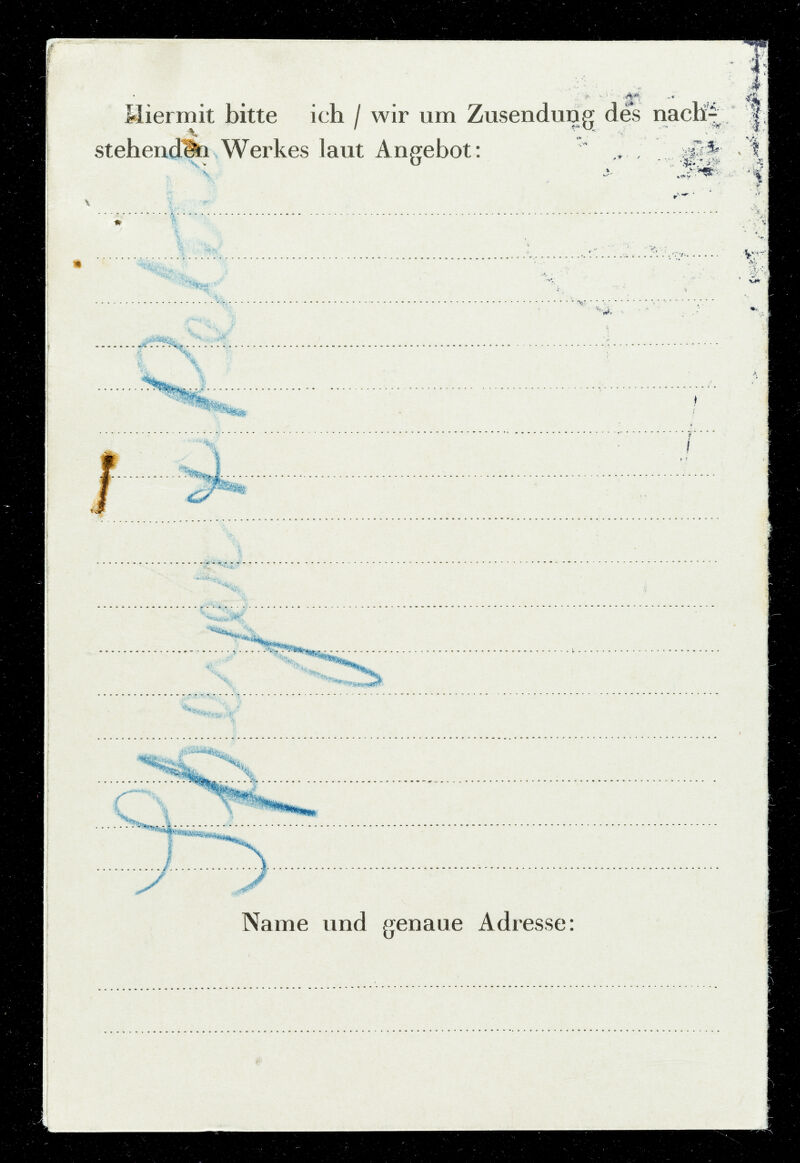 Hiermit bitte ich / wir um Zusendung des nach-
stehenden Werkes laut Angebot:
Speyer & Peters
Name und genaue Adresse: